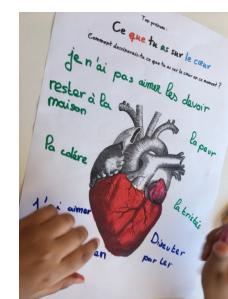 Ton prénom :
Ce que tu as sur le cœur
Comment dessinerais-tu ce que tu as sur le cœur en ce moment ?
je n'ai pas aimer les devoir
rester à la
maison
la peur
la colère
la tristes
J'ai aimer
Discuter
parler